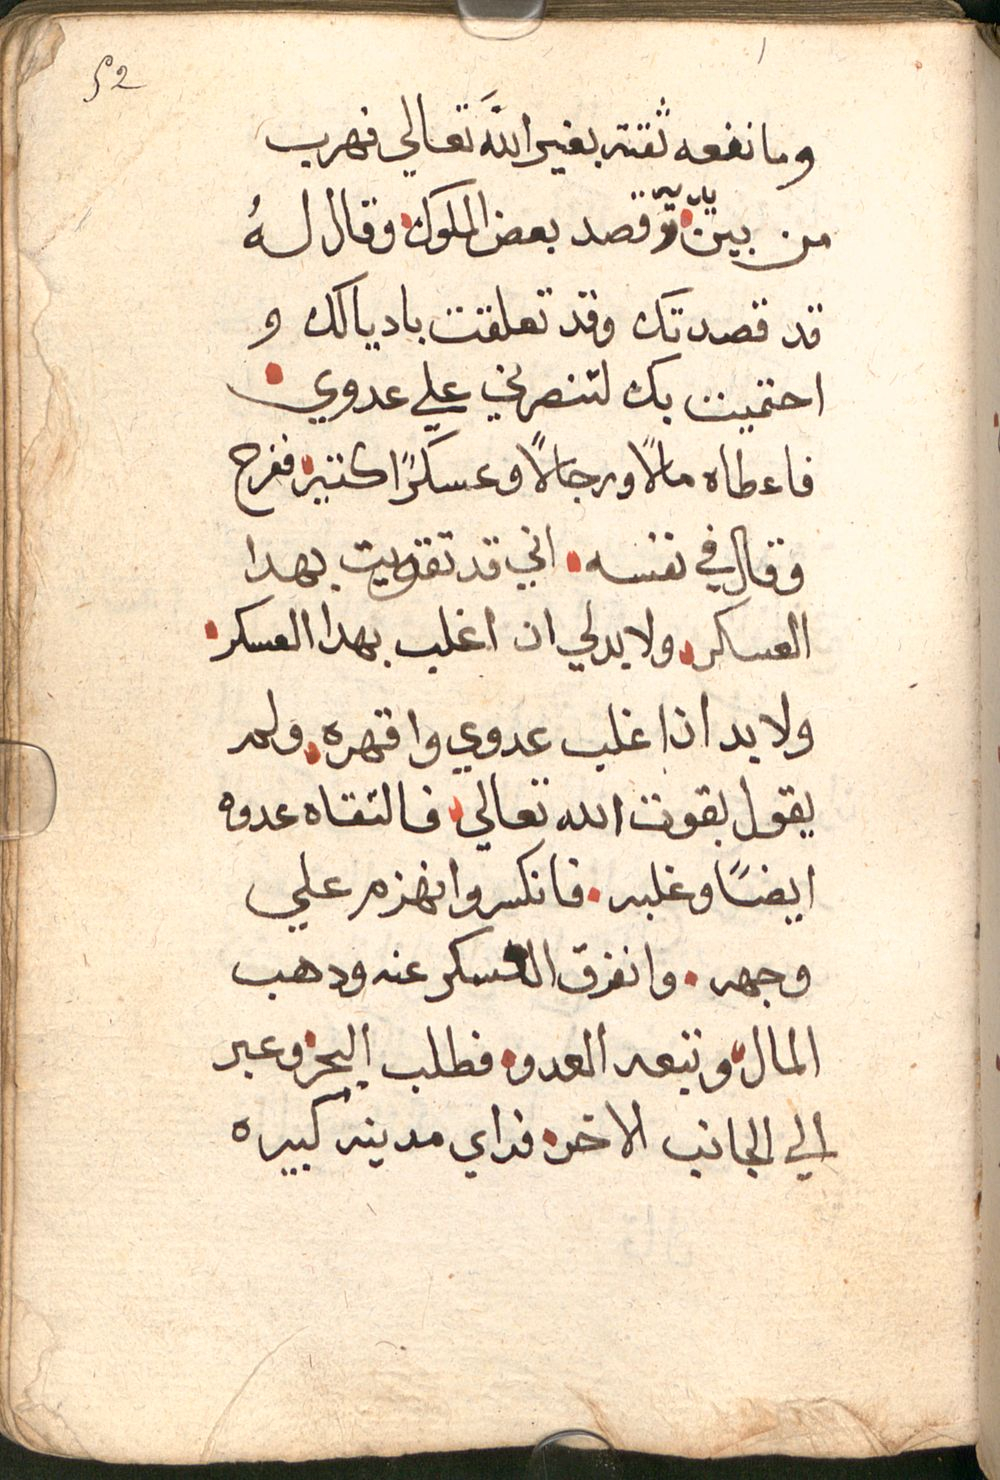 52
وما نفعه ثقته بغير الله تعالي فهرب
من بين يديه وقصد بعض الملوك وقال لهُ
قد قصدتك وقد تعلقت باديالك و
احتميت بك لتنصرني علي عدوي
فاعطاه مالاً ورجالاً وعسكرًا كتير ففرح
وقال في نفسه اني قد تقويت بهدا
العسكر ولا بد لي ان اغلب بهدا العسكر
ولا بد ان اغلب عدوي واقهره ولم
يقول بقوت الله تعالي فالتقاه عدوه
ايضًا وغلبه فانكسر وانهزم علي
وجهه وانفرق العسكر عنه ودهب
المال وتبعه العدو فطلب البحر وعبر
الي الجانب الاخر فراي مدينه كبيره